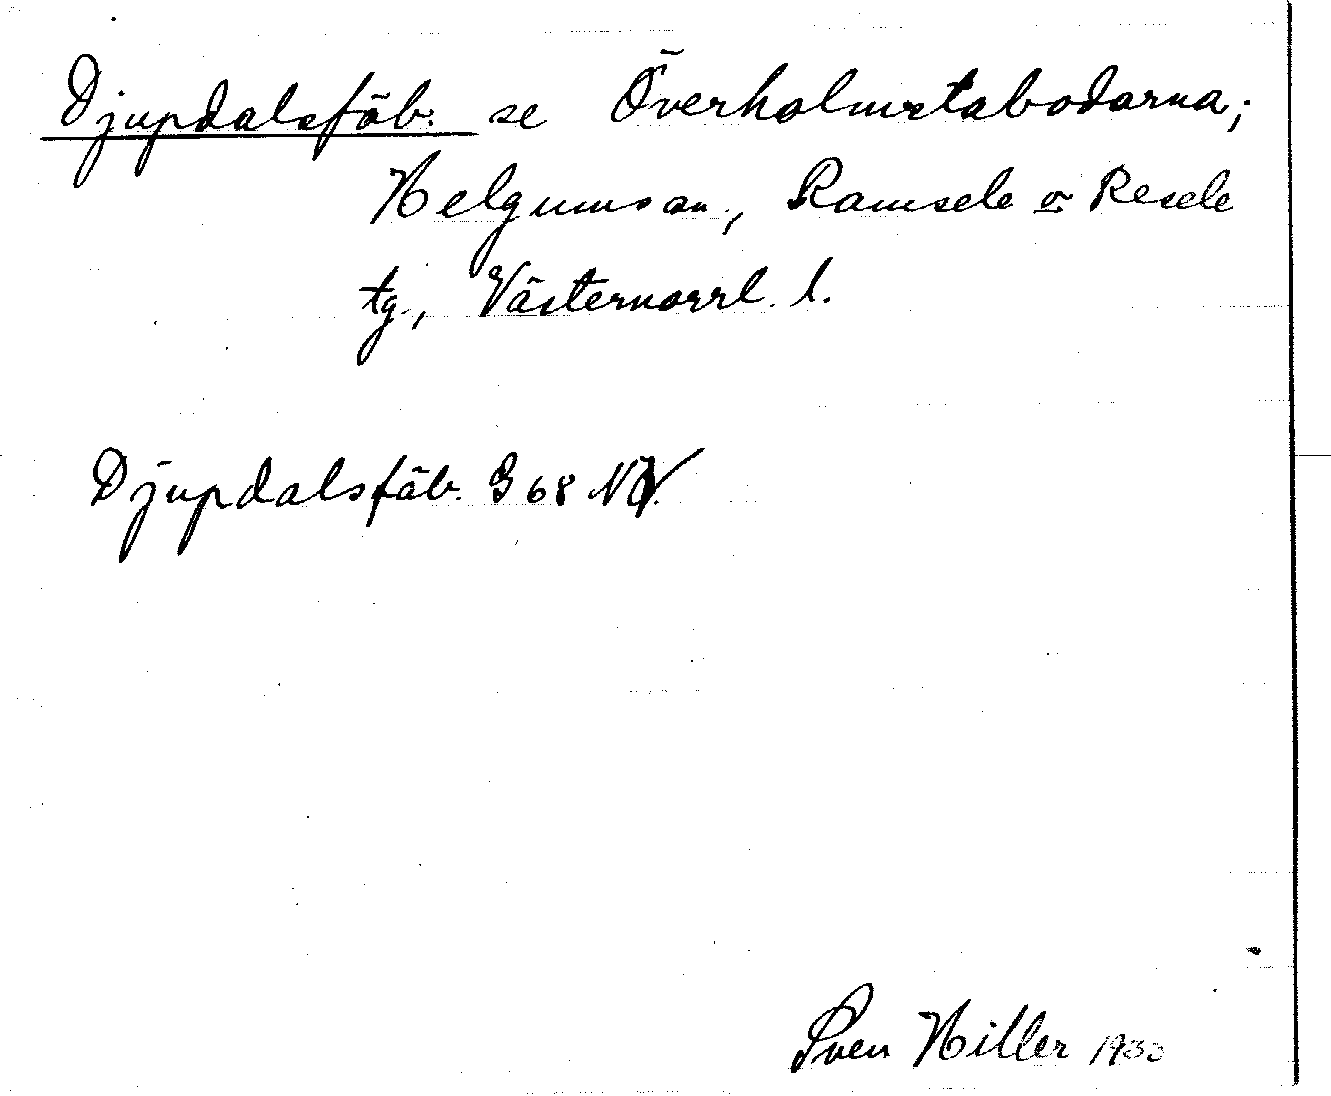 Djupdalsfäb. se Överholmstabodarna;
Helgums sn, Ramsele o Resele
tg, Västernorrl. l.
Djupdalsfäb. G 68
Sven Hiller 1933